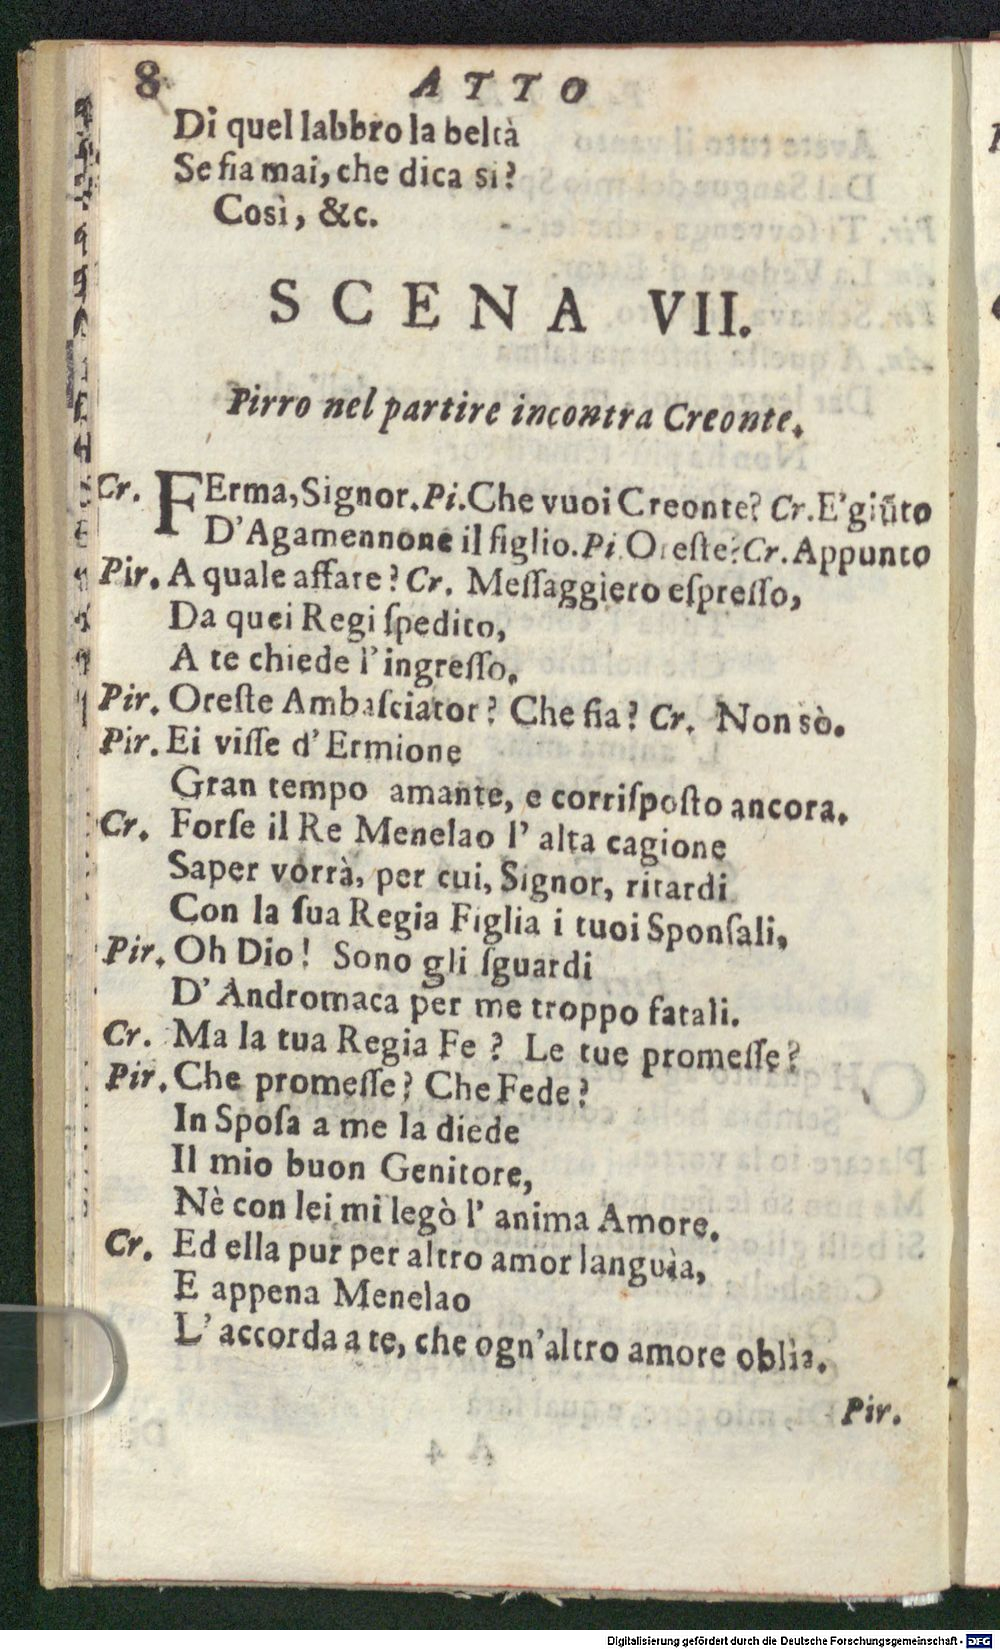 8 ATTO
Di quel labbro la beltà
Se fia mai, che dica si?
Così, &c.
SCENA VII.
Pirro nel partire incontra Creonte.
Cr. FErma, Signor. Pi. Che vuoi Creonte? Cr. E' giūto
D'Agamennone il figlio. Pi. Oreſte? Cr. Appunto
Pir. A quale affare? Cr. Meſſaggiero eſpreſſo,
Da quei Regi ſpedito,
A te chiede l'ingreſſo.
Pir. Oreſte Ambaſciator? Che fia? Cr. Non sò.
Pir. Ei viſſe d'Ermione
Gran tempo amante, e corriſpoſto ancora.
Cr. Forſe il Re Menelao l'alta cagione
Saper vorrà, per cui, Signor, ritardi
Con la ſua Regia Figlia i tuoi Sponſali,
Pir. Oh Dio! Sono gli ſguardi
D'Andromaca per me troppo fatali.
Cr. Ma la tua Regia Fe? Le tue promeſſe?
Pir. Che promeſſe? Che Fede?
In Spoſa a me la diede
Il mio buon Genitore,
Nè con lei mi legò l'anima Amore.
Cr. Ed ella pur per altro amor languìa,
E appena Menelao
L'accorda a te, che ogn'altro amore oblìa.
Pir.
Digitalisierung gefördert durch die Deutsche Forschungsgemeinschaft - DFG